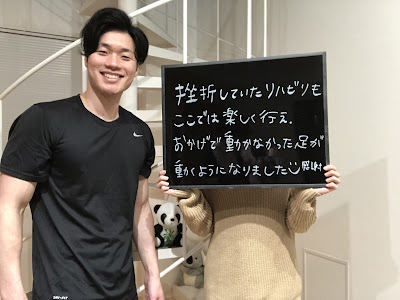 挫折していたリハビリも
ここでは楽しく行え.
おかげで動かなかった足が
動くようになりました 感謝
DRI-FIT